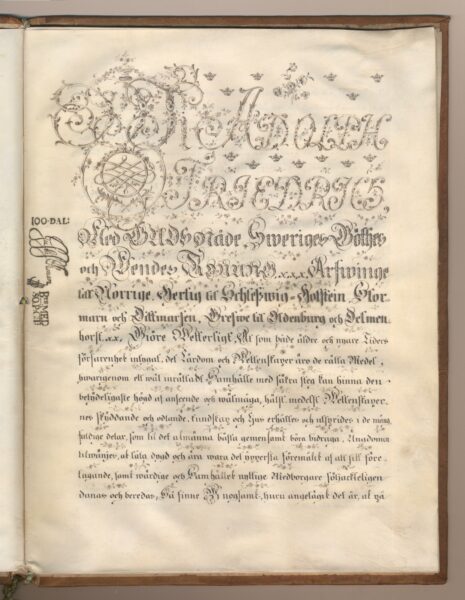 WI ADOLPH
FRIEDRICH,
100·DAL:
Med GUDS Nåde, Sweriges Göthes
och Wendes KONUNG &.&.&. Arfwinge
til Norrige, Hertig til Schleßwig-Holstein, Stor-
marn och Dittmarsen, Grefwe til Oldenburg och Delmen-
horst &.&. Giöre Wetterligt, At som både äldre och nyare Tiders
förfarenhet intygat, det Lärdom och Wettenskaper äro de rätta Medel,
hwarigenom ett wäl inrättadt Samhälle med säkra steg kan hinna den
betydeligaste högd af anseende och wälmåga, hälst medelst Wettenskaper-
nes skyddande och odlande, kundskap och ljus erhålles och utsprides i de mång-
faldige delar, som til det almänna bästa gemensamt böra bidraga, Ungdomen
tilwänjes, at låta dygd och ära wara det yppersta föremålet af alt sitt före-
tagande, samt wärdige och Samhället nyttige Medborgare följackteligen
danas och beredas, Så finne Wi nogsamt, huru angelägit det är, at på